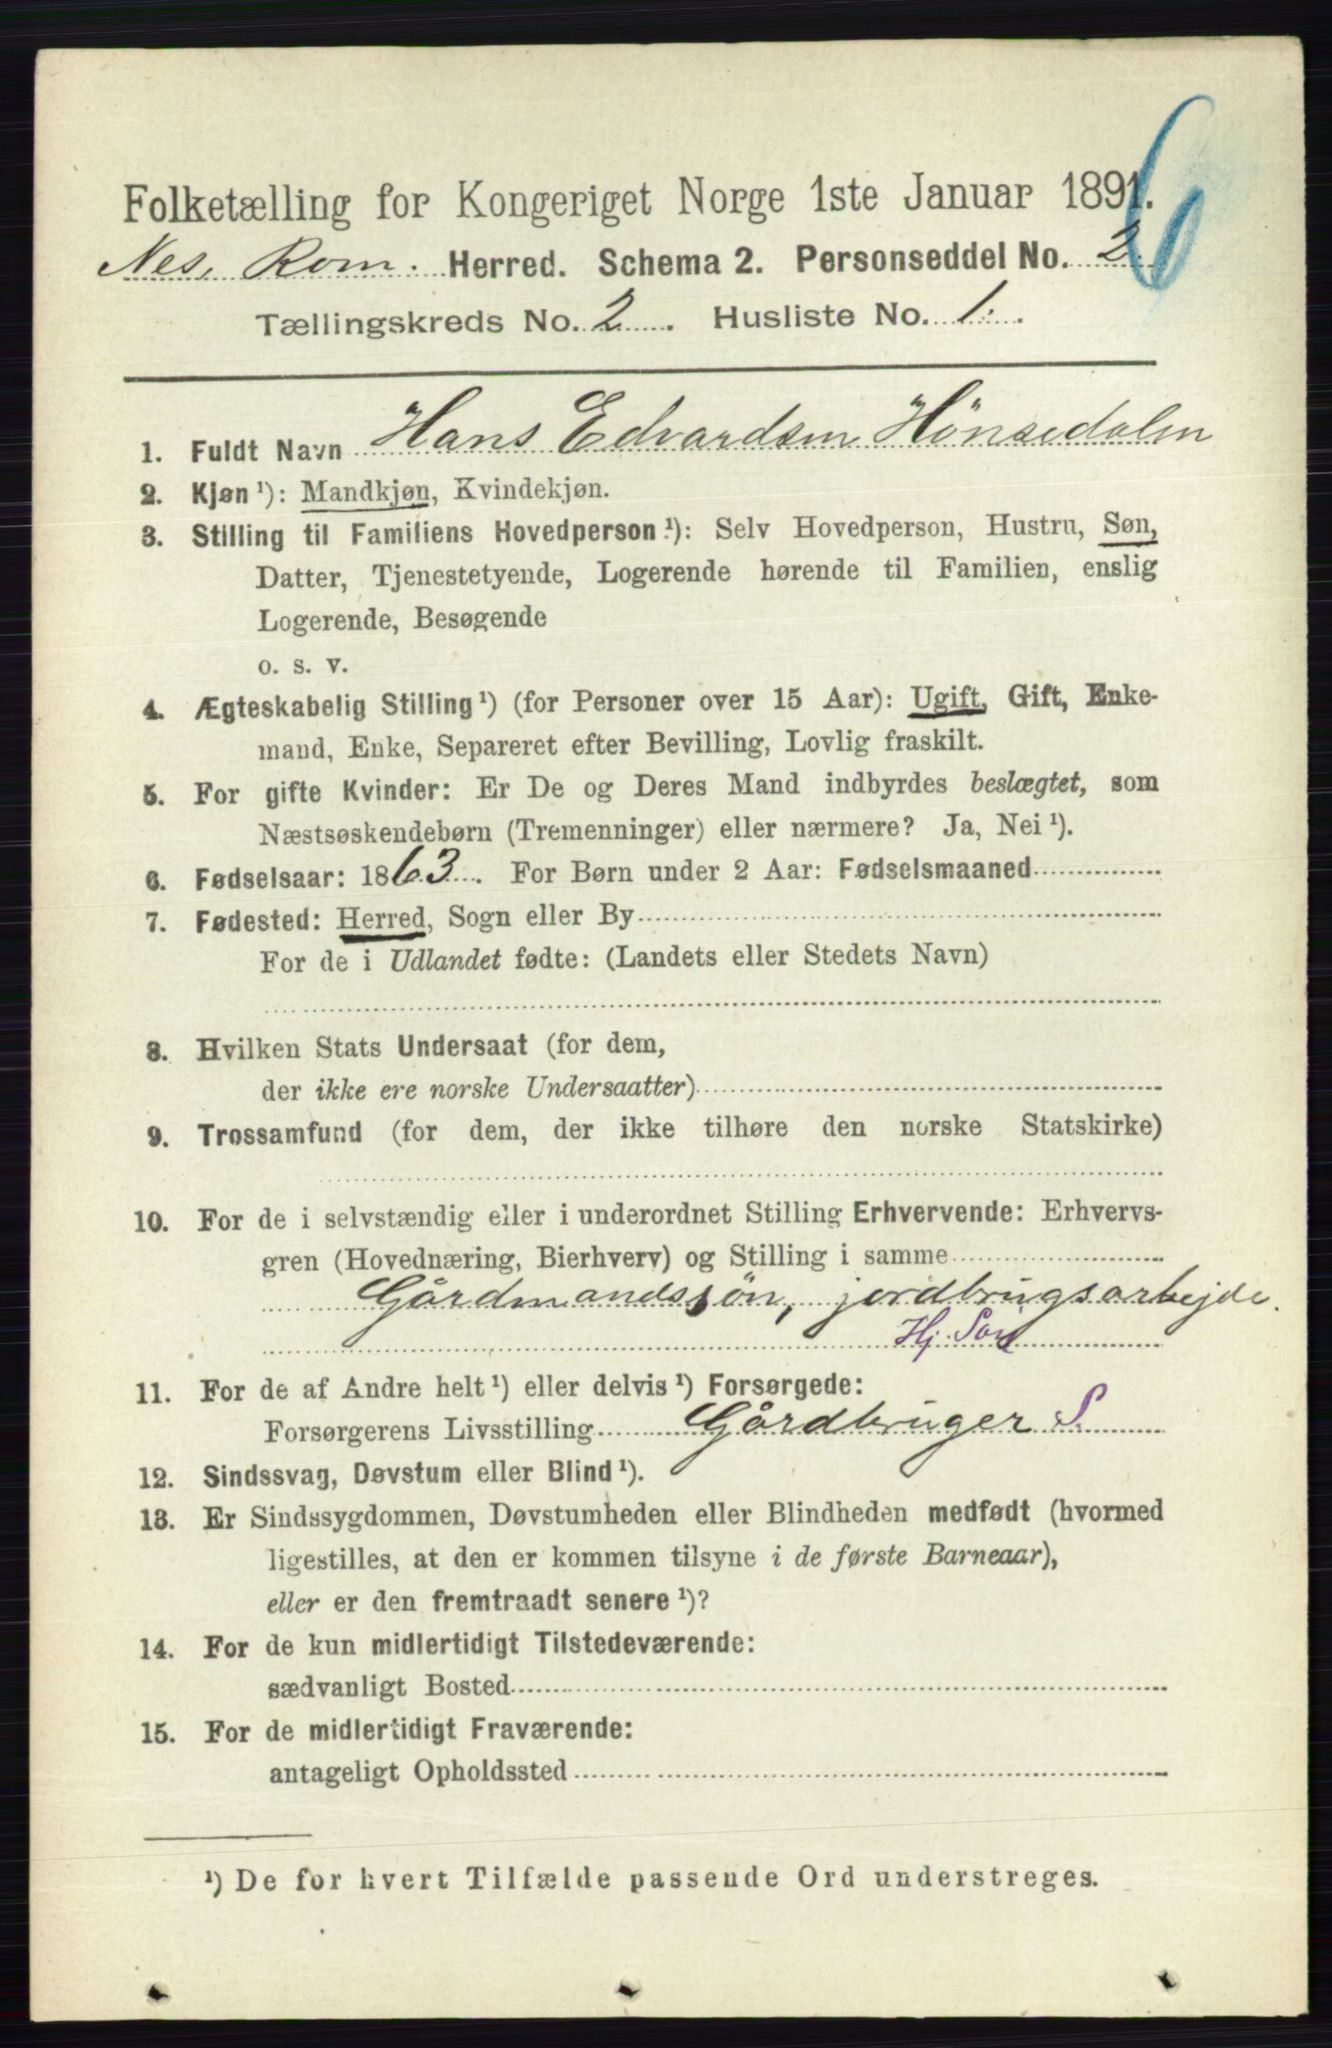 Folketælling for Kongeriget Norge 1ste Januar 1891.
6
Nes, Rom. Herred. Schema 2. Personseddel No. 2
Tællingskreds No. 2. Husliste No. 1.
1. Fuldt Navn Hans Edvardsen Hönsedalen
2. Kjøn ¹): Mandkjøn, Kvindekjøn.
3. Stilling til Familiens Hovedperson ¹): Selv Hovedperson, Hustru, Søn,
Datter, Tjenestetyende, Logerende hørende til Familien, enslig
Logerende, Besøgende
o. s. v.
4. Ægteskabelig Stilling ¹) (for Personer over 15 Aar): Ugift, Gift, Enke-
mand, Enke, Separeret efter Bevilling, Lovlig fraskilt.
5. For gifte Kvinder: Er De og Deres Mand indbyrdes beslægtet, som
Næstsøskendebørn (Tremenninger) eller nærmere? Ja, Nei ¹).
6. Fødselsaar: 1863. For Børn under 2 Aar: Fødselsmaaned
7. Fødested: Herred, Sogn eller By
For de i Udlandet fødte: (Landets eller Stedets Navn)
8. Hvilken Stats Undersaat (for dem,
der ikke ere norske Undersaatter)
9. Trossamfund (for dem, der ikke tilhøre den norske Statskirke)
10. For de i selvstændig eller i underordnet Stilling Erhvervende: Erhvervs-
gren (Hovednæring, Bierhverv) og Stilling i samme
Gårdmandssön, jordbrugsarbejde.
Hj. Søn
11. For de af Andre helt ¹) eller delvis ¹) Forsørgede:
Forsørgerens Livsstilling Gårdbruger S.
12. Sindssvag, Døvstum eller Blind ¹).
13. Er Sindssygdommen, Døvstumheden eller Blindheden medfødt (hvormed
ligestilles, at den er kommen tilsyne i de første Barneaar),
eller er den fremtraadt senere ¹)?
14. For de kun midlertidigt Tilstedeværende:
sædvanligt Bosted
15. For de midlertidigt Fraværende:
antageligt Opholdssted
¹) De for hvert Tilfælde passende Ord understreges.